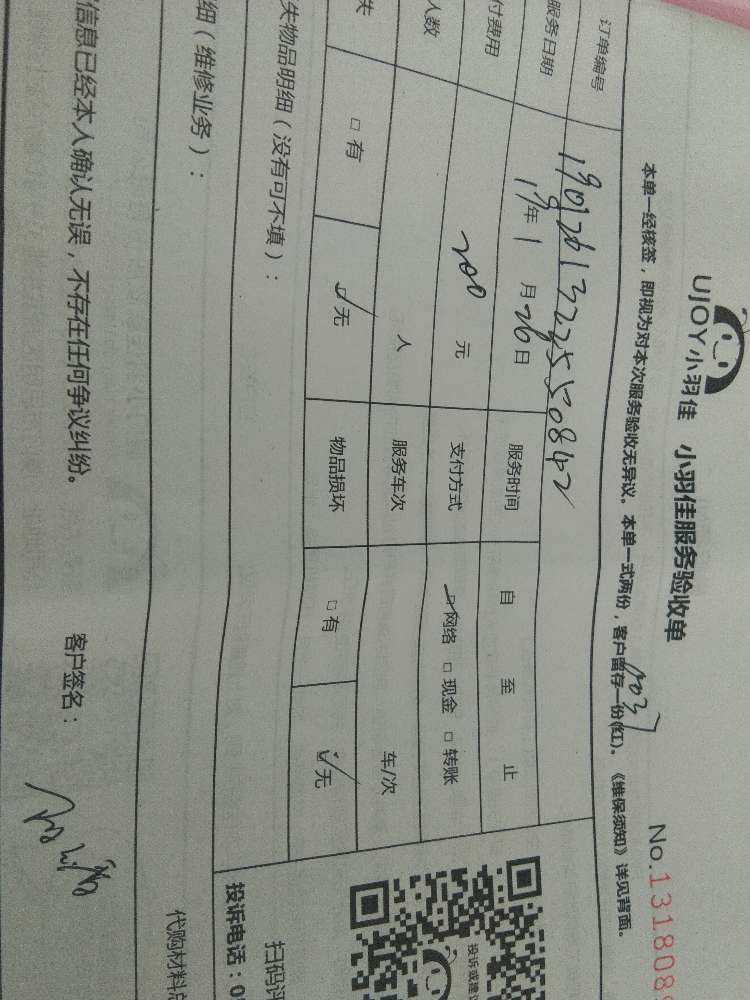 UJOY小羽佳 小羽佳服务验收单
No.131808
本单一经核签，即视为对本次服务验收无异议。本单一式两份，客户留存一份(红)。《维保须知》详见背面。
订单编号 19012613225550842
服务日期 19年1月26日 服务时间 自 至 止
付费用 200元 支付方式 网络 □现金 □转账
人数 人 服务车次 车/次
失 □有 无 物品损坏 □有 无
失物品明细（没有可不填）：
细（维修业务）：
信息已经本人确认无误，不存在任何争议纠纷。
客户签名：
投诉或建议
扫码评
投诉电话：0
代购材料总